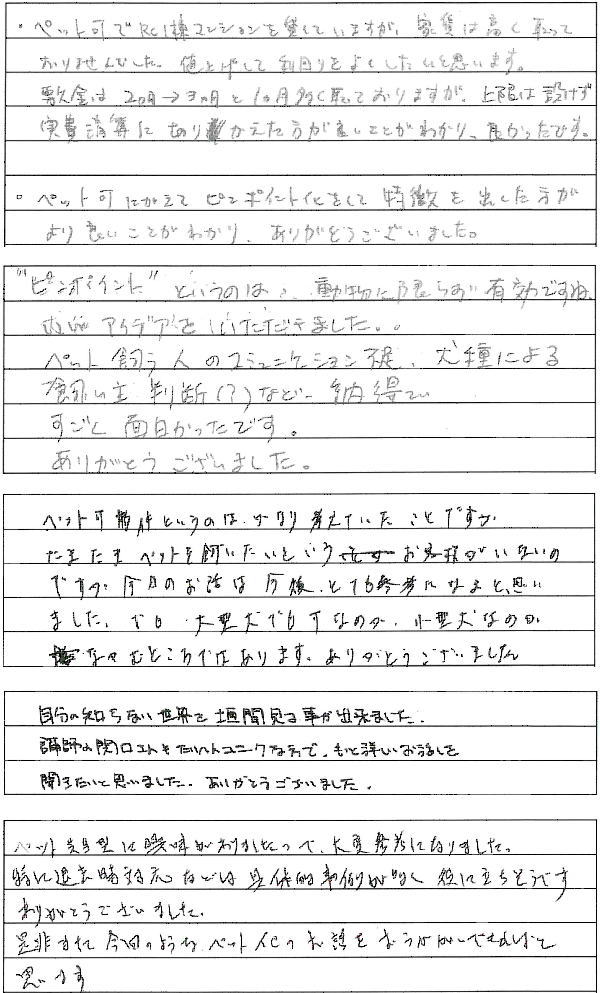 ・ペット可でRC1棟マンションを貸していますが、家賃は高く取って
おりませんでした。値上げして利回りをよくしたいと思います。
敷金は2ヶ月→3ヶ月と1ヶ月多く取っておりますが、上限は設けず
実費清算に切りかえた方が良いことがわかり、良かったです。
・ペット可にかえて ピンポイント化をして 特徴を出した方が
より良いことがわかり、ありがとうございました。
"ピンポイント"というのは、動物に限らない有効ですね、
アイデアをいただきました。
ペット飼う人のコミュニケーション、犬種による
飼い主判断(?)など 納得で
すごく面白かったです。
ありがとうございました。
ペット可物件というのは、かなり考えていたことですが
たまたまペットを飼いたいという お客様がいないの
ですが、今日のお話は今後、とても参考になると思い
ました。でも、大型犬でも可なのか、小型犬なのか
なやむところではあります。ありがとうございました
自分の知らない世界を垣間見る事が出来ました。
講師の関口さんもたいへんユニークな方で、もっと詳しいお話しを
聞きたいと思いました。ありがとうございました。
ペット共生型に興味がありましたので、大変参考になりました。
特に退去時対応などは具体的事例が多く 役に立ちそうです
ありがとうございました。
是非また今回のようなペット化のお話をおうかがいできればと
思います